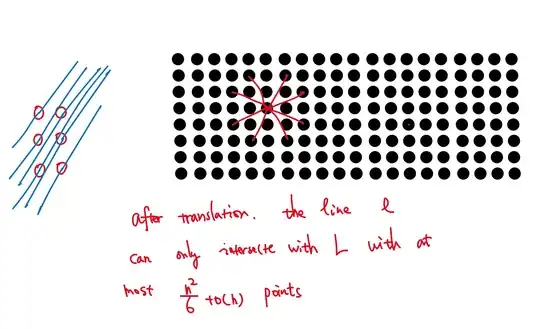 after translation. the line l
can only intersecte with L with at
most n²/6 +o(n) points